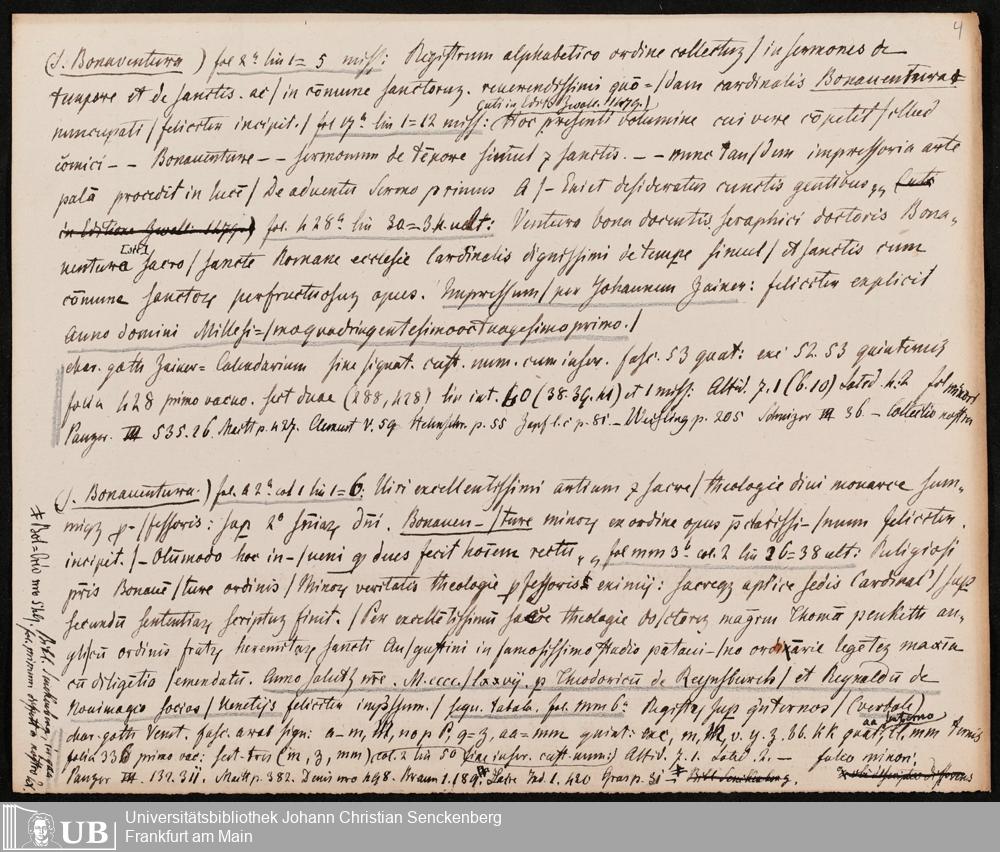 4
(S. Bonaventura) fol 2ª lin 1= 5 miss: Registrum alphabetico ordine collectuz / in sermones de
tempore et de sanctis. ac / in cōmune sanctoruz. reverendissimi quō=/dam cardinalis Bonauenture
nuncupati / feliciter incipit. / fol 17ª lin 1=12 miss: Hoc presenti volumine cui vere cōpetit /
(uti in Edit. Zwoll. 1479.)
cōmici -- Bonauēture -- sermonum de tēpore simul z sanctis. -- nunc tan/dem impressoria arte
palā procedit in lucē / De adventu Sermo primus A /- Eniet desideratus cunctis gentibus
in Editione Zwoll. 1479.) fol. 428ª lin 30=34. ult: Ventura bona docentis seraphici doctoris Bona-
uentura [sic] sacro / sancte Romane ecclesie Cardinalis dignissimi de tempe simul / et sanctis cum
cōmune sanctoz perfructuosuz opus. Impressum / per Johannem Zainer: feliciter explicit
Anno domini Millesi=/moquadringentesimooctuagesimoprimo. /
char. goth Zainer= Calendarium sine signat. cust. num. cum inscr. fasc. 53 quat: exc 52. 53 quinterniz
folia 428 primo vacuo. sect duae (288, 428) lin int. 40 (38. 39. 41) et 1 miss: Altid. 7. 1 (6.10) Latid 4.2 fol minori
Panzer. III 535. 26. Maitt p. 427. Clement V. 59 Helmschr. p. 55 Zapf l. c p. 81. - Weisling p. 205 Schwizer III 36. - Collectio nostra
(S. Bonauentura.) fol. a 2ª col 1 lin 1=6: Uiri excellentissimi artium z sacre / theologie diui monarce sum-
miqz p-/fessoris: sup 2º sniaz dñi. Bonauen-/ture minoz ex ordine opus pclarissi-/mum feliciter.
incipit. /- Olūmodo hoc in-/ueni q deus fecit hoiem rectu, fol mm 3ª col. 2 lin 26=38 ult: Religiosi
pris Bonauē/ture ordinis / Minoz veritatis theologie pfessoris eximij: sacreqz aplice sedis Cardinal' / sup
secundū sententiaz scriptuz finit. / Per excellētissimū sacre theologie do/ctorez magrm Thomā penketh an-
glicū ordinis fratz heremitaz sancti Au/gustini in famosissimo studio patavi-/no ordinarie legētez maxia
cū diligētia / emendatū. Anno salutz nrē. M.cccc. / lxxvij. p Theodoricū de Reynsburch / et Reynaldū de
Nouimageo socios / Venetijs feliciter impssum. / sequ. Tabula. fol. mm 6ª Registz / sup qnternos / (verbole)
char. goth Venet. fasc. arab sign: a-m, nop P. q=z, aa=mm quint: exc, m, v. y. z. bb. kk quat, ll, mm ternis
aa interno
folia 336 primo vac: sect tris (m, z, mm) col. 2 lin 50 sine inscr. cust. num: Altid. 7. 1. Latid 2. — folio minori.
Panzer III. 132. 311. Maitt p. 382. Denis nro 498. Braun 1. 189. Laire Ind. 1. 420 Gras p. 31 - ‡ Bibl Senckenberg.
‡ Bibl Senckenberg. in qua
fol. primum desideratur